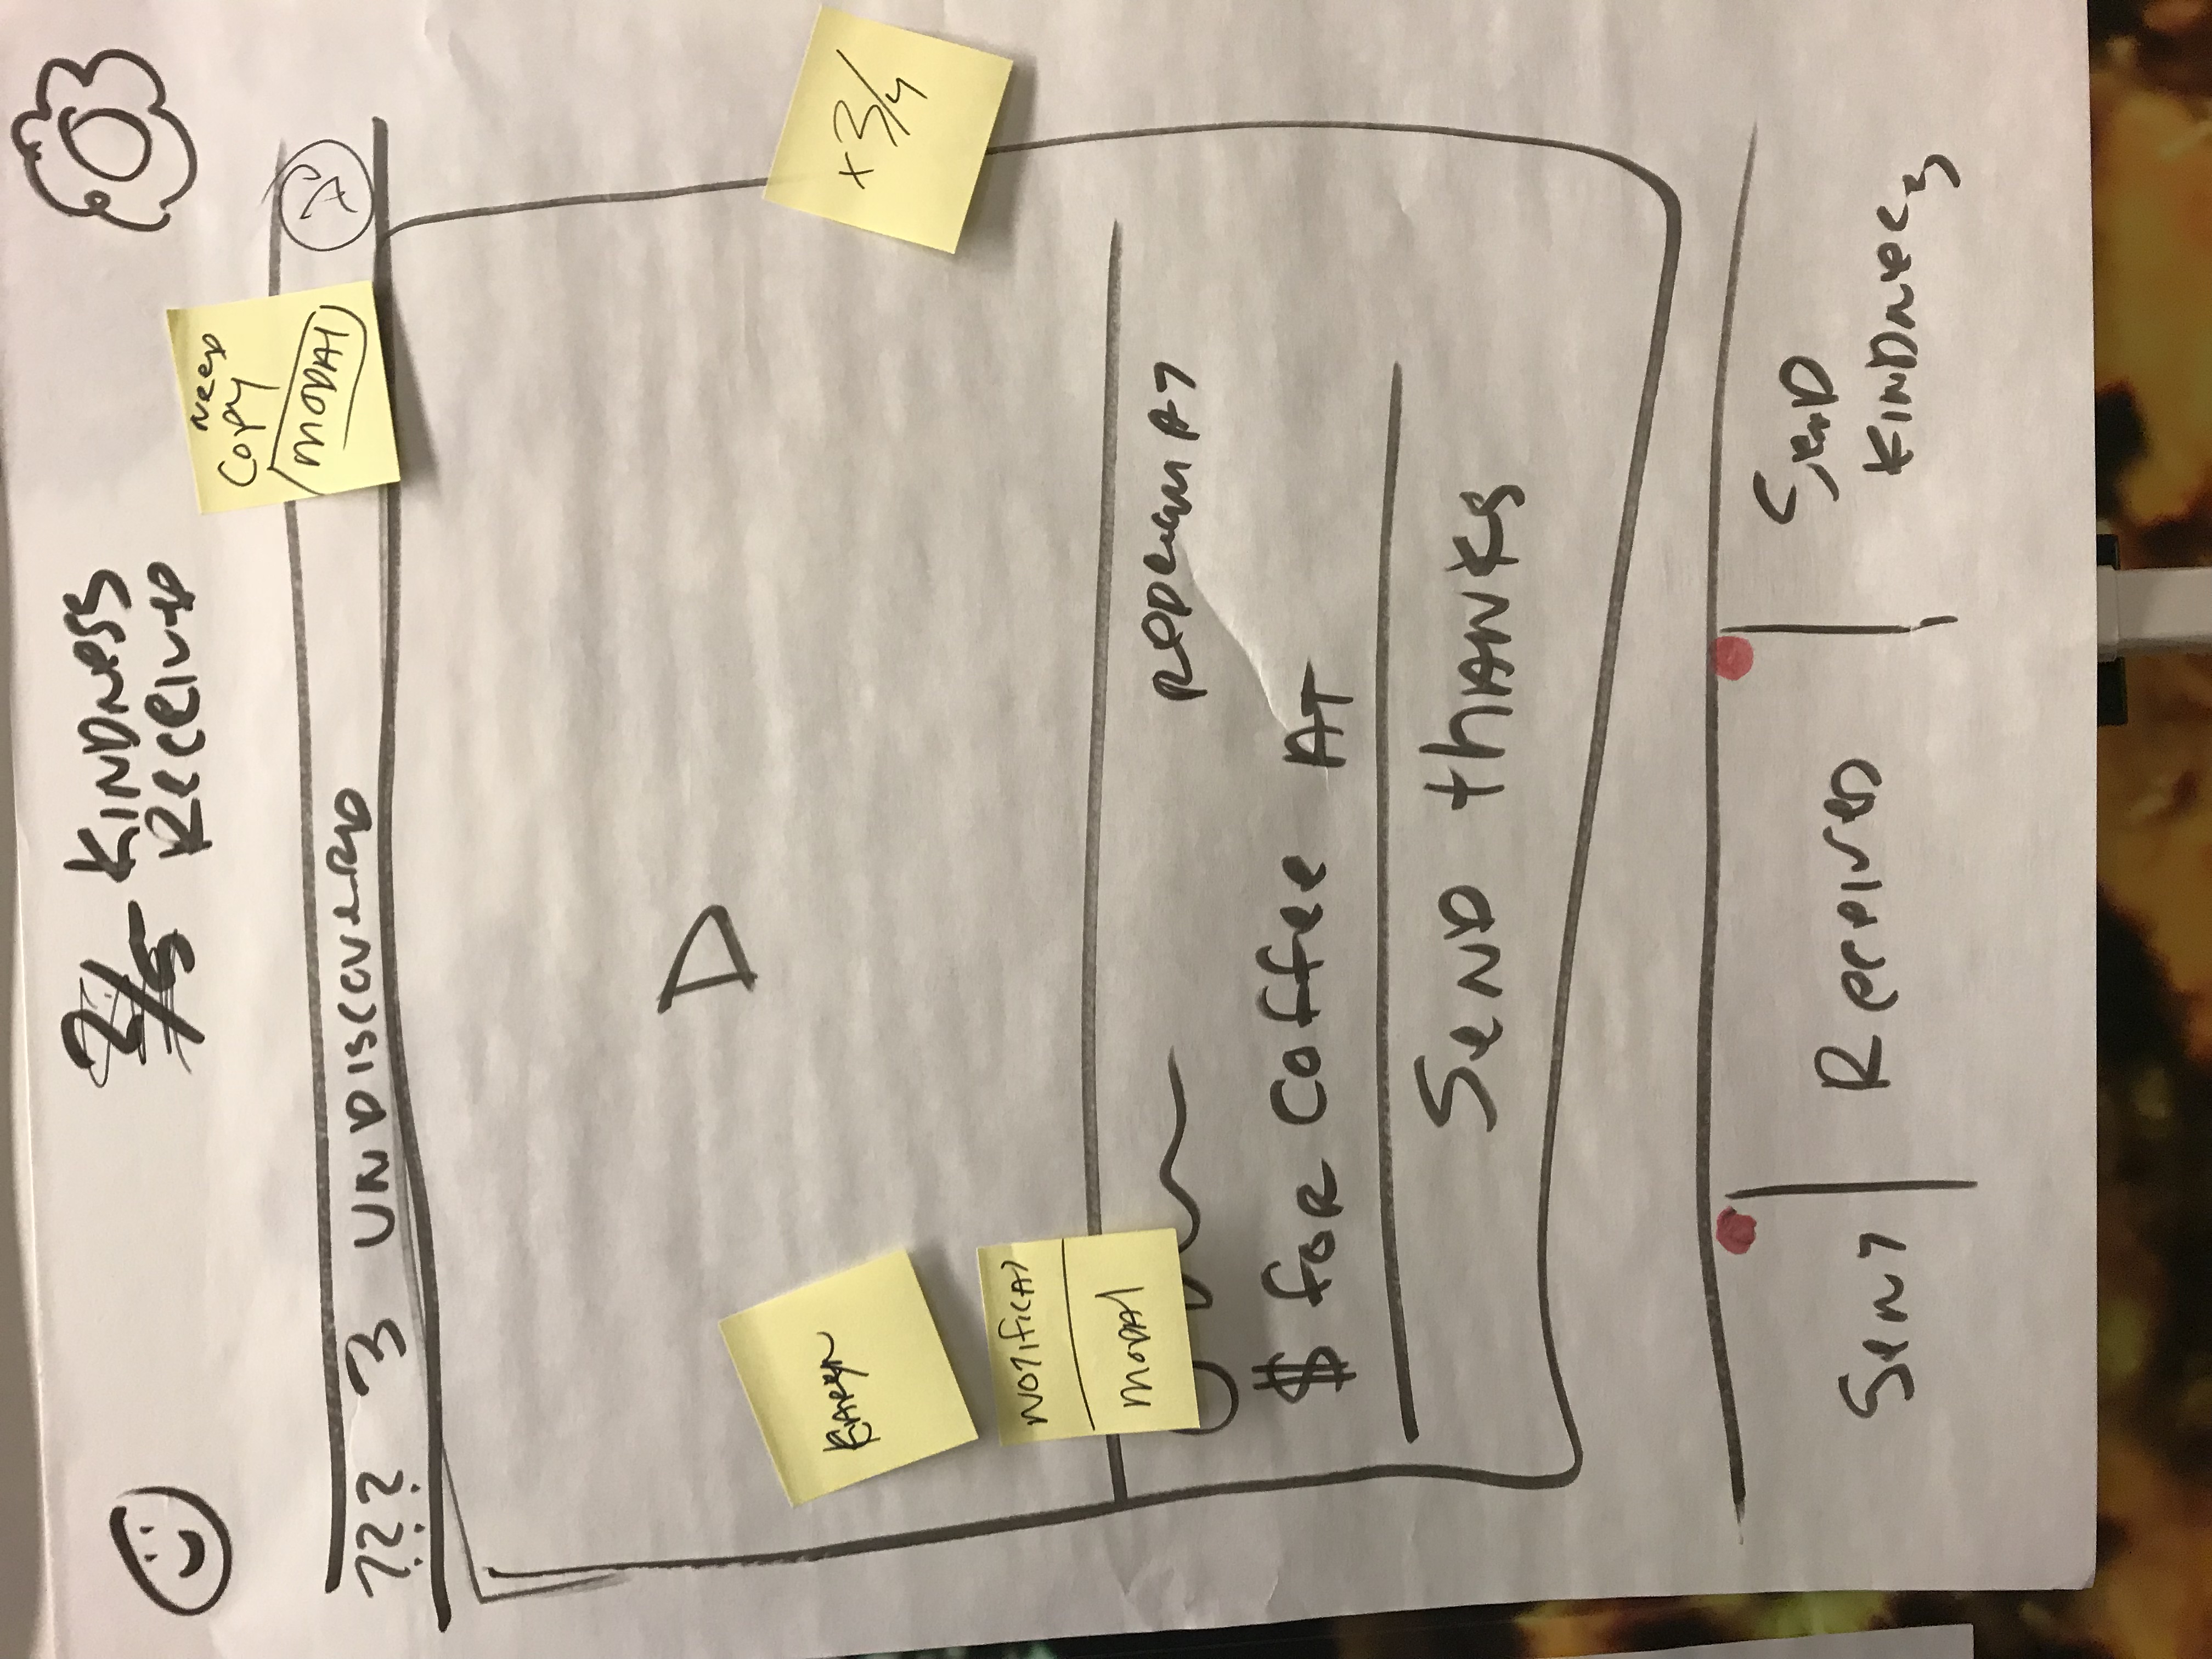 2/5 KINDNESS
RECEIVED
NEED
COPY
MODAL
??? 3 UNDISCOVERED
KARYN
x3/4
NOTIFICAT
MODAL
REDEEM AT
$ FOR COFFEE AT
SEND THANKS
SENT
RECEIVED
SEND
KINDNESS